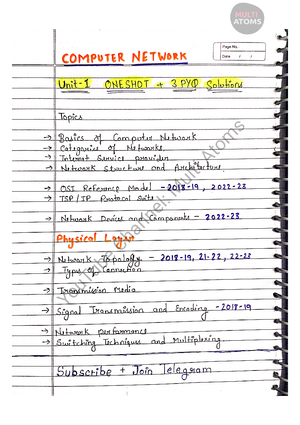 MULTI
ATOMS
Page No.
Date / /
COMPUTER NETWORK
Unit-I ONESHOT + 3 PYQ Solutions
Topics
→ Basics of Computer Network
→ Categories of Networks.
→ Internet Service provider
→ Network Structure and Architecture.
→ OSI Reference Model - 2018-19, 2022-23
→ TSP/IP Protocol suite
→ Network Devices and Components - 2022-23
Physical Layer
→ Network Topology - 2018-19, 21-22, 22-23
→ Types of Connection
→ Transmission Media
→ Signal Transmission and Encoding - 2018-19
→ Network performance
→ Switching Techniques and Multiplexing.
Subscribe + Join Telegram
YouTube Channel: Multi Atoms